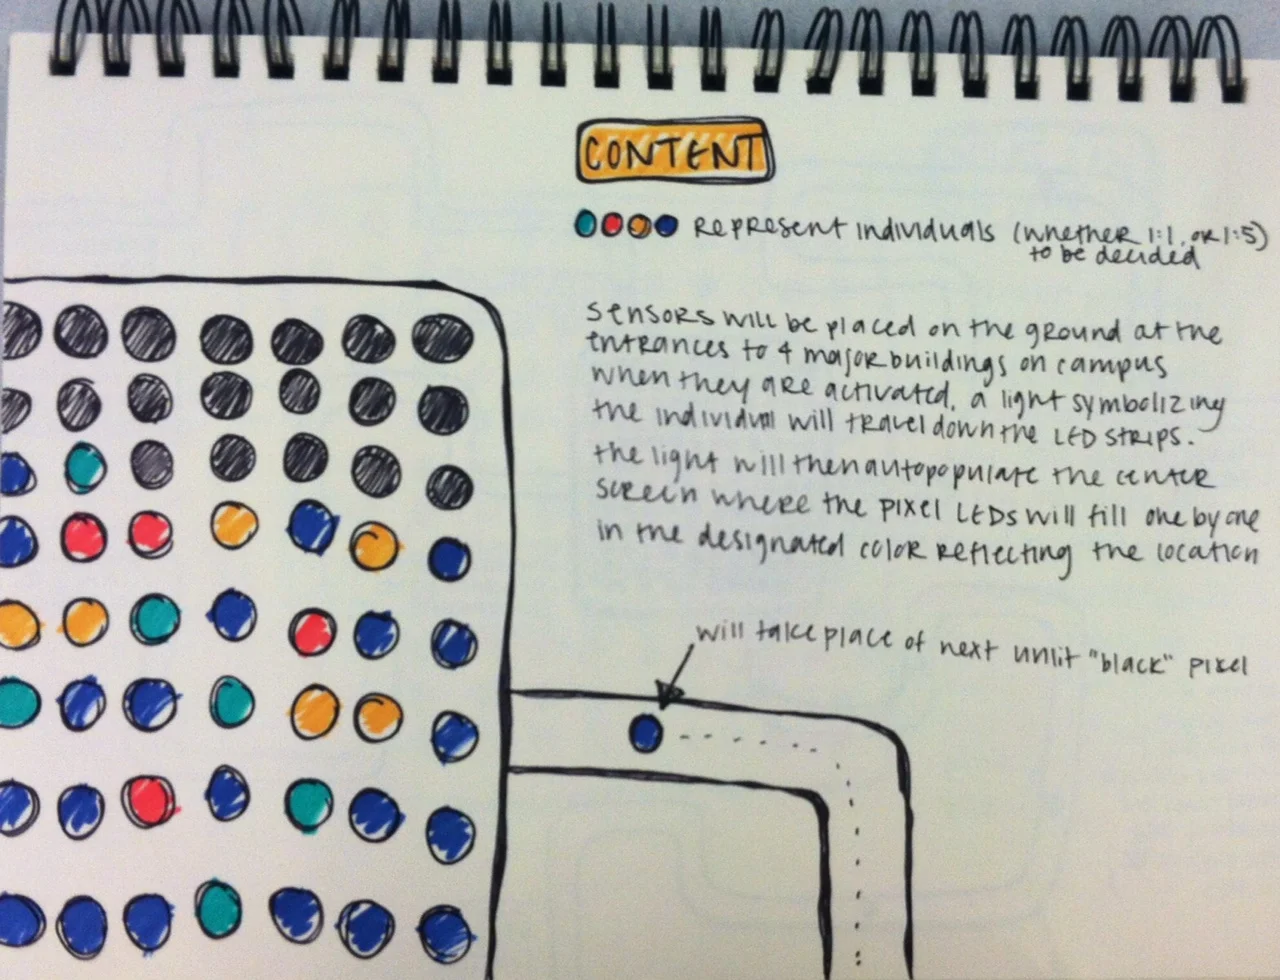 CONTENT
REPRESENT INDIVIDUALS (WHETHER 1:1, OR 1:5)
to be decided
SENSORS will be placed on the ground at the
ENTRANCES to 4 major buildings on campus
when they are activated, a light symbolizing
the individual will travel down the LED STRIPS.
the light will then autopopulate the center
screen where the pixel LEDs will fill one by one
in the designated color reflecting the location
will take place of next unlit "black" pixel